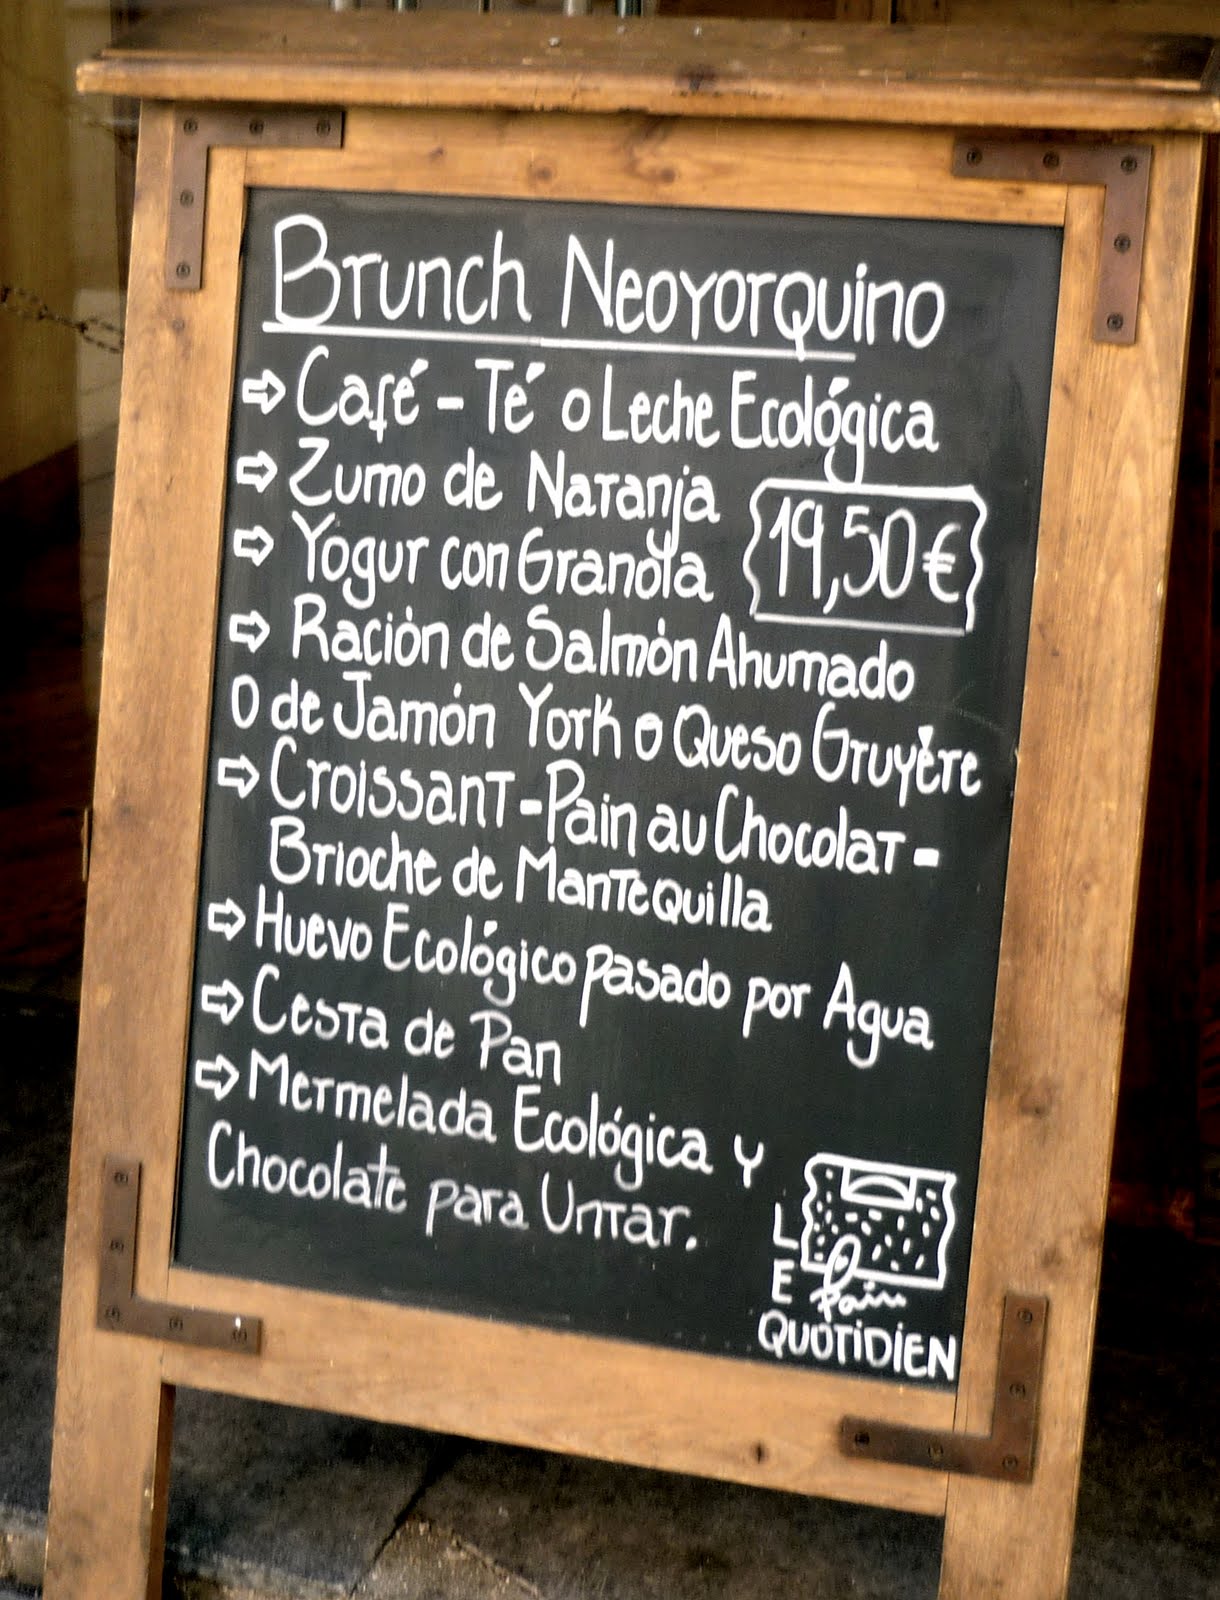 Brunch Neoyorquino
⇨ Café - Té o Leche Ecológica
⇨ Zumo de Naranja
19,50€
⇨ Yogur con Granola
⇨ Ración de Salmón Ahumado
O de Jamón York o Queso Gruyère
⇨ Croissant - Pain au Chocolat -
Brioche de Mantequilla
⇨ Huevo Ecológico pasado por Agua
⇨ Cesta de Pan
⇨ Mermelada Ecológica y
Chocolate para Untar.
LE Pain
QUOTIDIEN